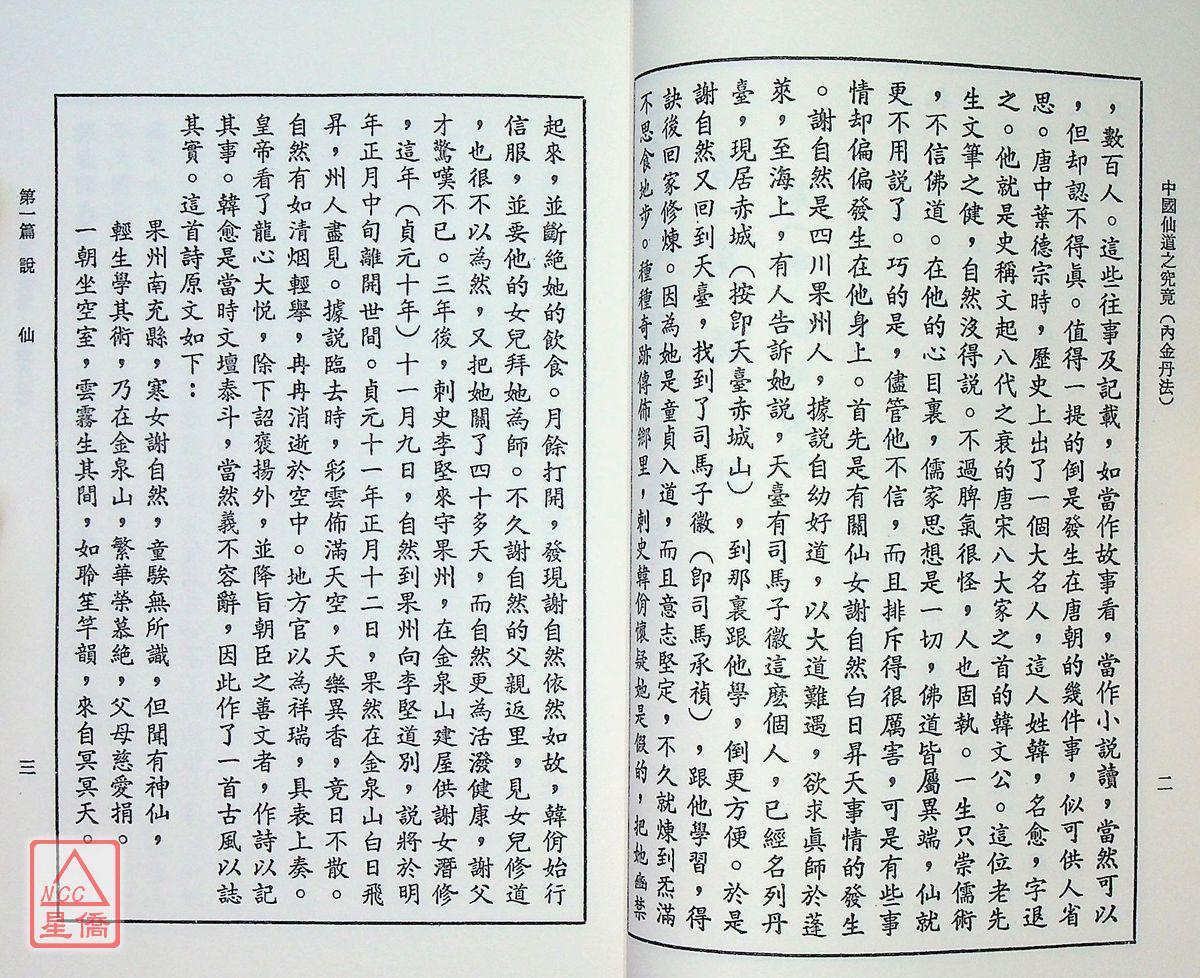 中國仙道之究竟（內金丹法）
二
，數百人。這些往事及記載，如當作故事看，當作小說讀，當然可以
，但却認不得眞。值得一提的倒是發生在唐朝的幾件事，似可供人省
思。唐中葉德宗時，歷史上出了一個大名人，這人姓韓，名愈，字退
之。他就是史稱文起八代之衰的唐宋八大家之首的韓文公。這位老先
生文筆之健，自然沒得説。不過脾氣很怪，人也固執。一生只崇儒術
，不信佛道。在他的心目裏，儒家思想是一切，佛道皆屬異端，仙就
更不用說了。巧的是，儘管他不信，而且排斥得很厲害，可是有些事
情却偏偏發生在他身上。首先是有關仙女謝自然白日昇天事情的發生
。謝自然是四川果州人，據說自幼好道，以大道難遇，欲求眞師於蓬
萊，至海上，有人告訴她説，天臺有司馬子徽這麼個人，已經名列丹
臺，現居赤城（按卽天臺赤城山），到那裏跟他學，倒更方便。於是
謝自然又回到天臺，找到了司馬子徽（卽司馬承禎），跟他學習，得
訣後回家修煉。因為她是童貞入道，而且意志堅定，不久就煉到炁滿
不思食地步。種種奇跡傳佈鄉里，刺史韓佾懷疑她是假的，把她幽禁
起來，並斷絕她的飲食。月餘打開，發現謝自然依然如故，韓佾始行
信服，並要他的女兒拜她為師。不久謝自然的父親返里，見女兒修道
，也很不以為然，又把她關了四十多天，而自然更為活潑健康，謝父
才驚嘆不已。三年後，刺史李堅來守果州，在金泉山建屋供謝女潛修
，這年（貞元十年）十一月九日，自然到果州向李堅道別，説將於明
年正月中旬離開世間。貞元十一年正月十二日，果然在金泉山白日飛
昇，州人盡見。據說臨去時，彩雲佈滿天空，天樂異香，竟日不散。
自然有如清烟輕擧，冉冉消逝於空中。地方官以為祥瑞，具表上奏。
皇帝看了龍心大悅，除下詔褒揚外，並降旨朝臣之善文者，作詩以記
其事。韓愈是當時文壇泰斗，當然義不容辭，因此作了一首古風以誌
其實。這首詩原文如下：
果州南充縣，寒女謝自然，童騃無所識，但聞有神仙，
輕生學其術，乃在金泉山，繁華榮慕絕，父母慈愛捐。
一朝坐空室，雲霧生其間，如聆笙竽韻，來自冥冥天。
第一篇 說 仙
三
NCC
星僑